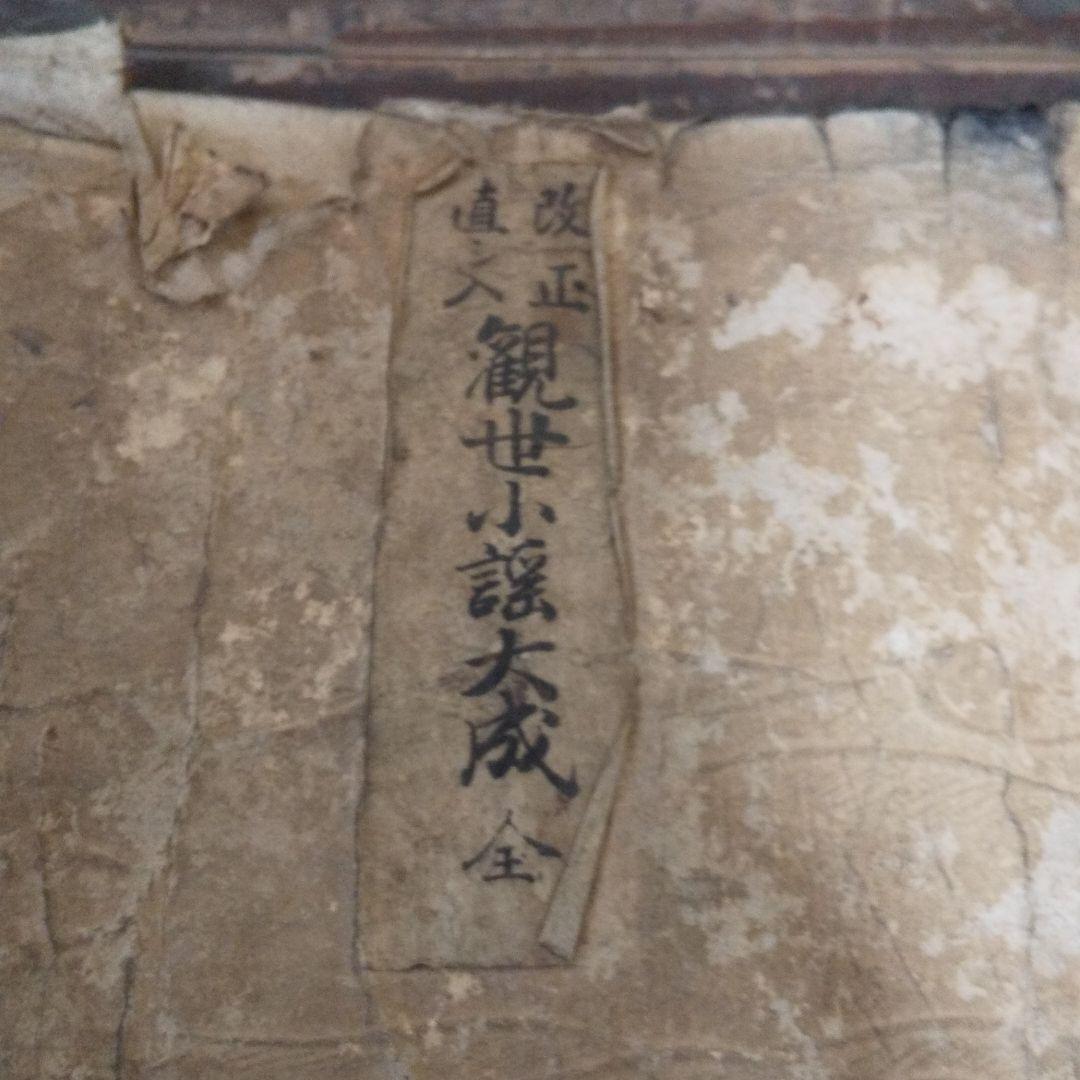 改正
直シ入
觀世小謡大成 全